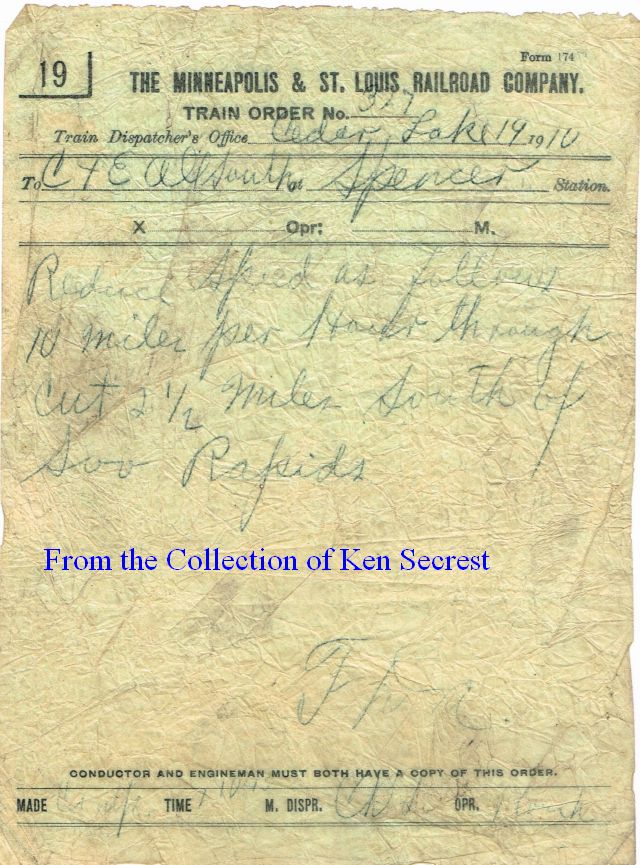 19
Form 174
THE MINNEAPOLIS & ST. LOUIS RAILROAD COMPANY.
TRAIN ORDER No.
Train Dispatcher's Office Cedar Lake 19 1910
To C & E All South at Spencer Station.
X Opr: M.
Reduce Speed as follows
10 miles per Hour through
Cut 2 1/2 Miles South of
Soo Rapids
From the Collection of Ken Secrest
CONDUCTOR AND ENGINEMAN MUST BOTH HAVE A COPY OF THIS ORDER.
MADE TIME M. DISPR. OPR.